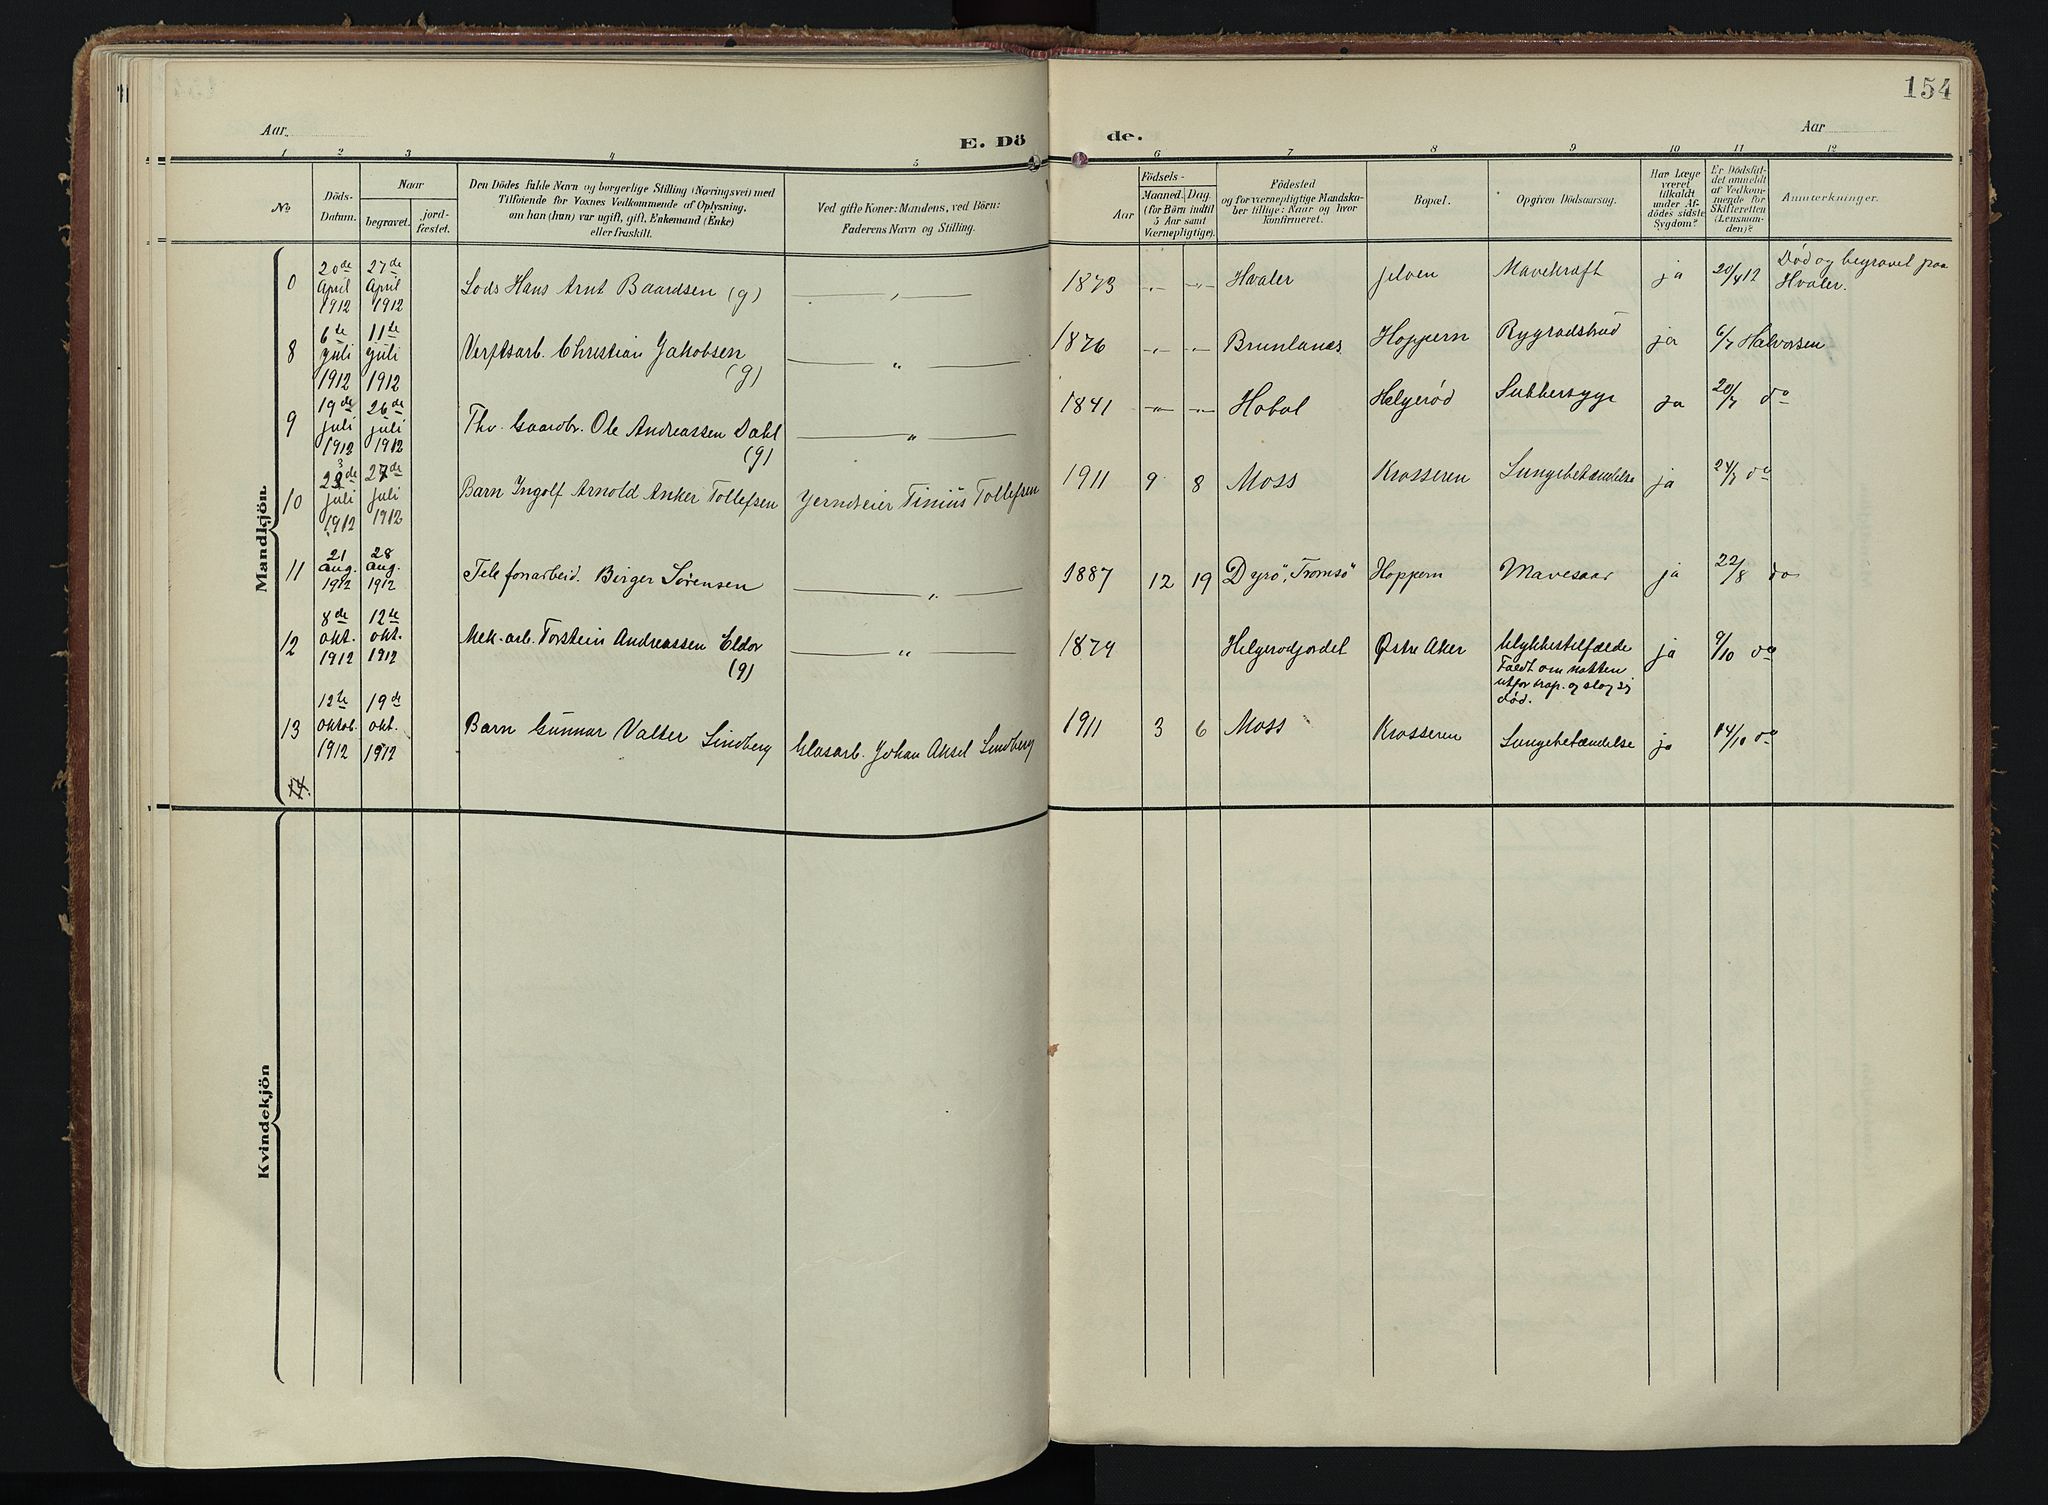 154
Aar
E. Dö
de.
Aar
1 2 3 4 5 6 7 8 9 10 11 12
No.
Döds-
Datum.
Naar
begravet.
jord-
fæstet.
Den Dödes fulde Navn og borgerlige Stilling (Næringsvei) med
Tilföiende for Voxnes Vedkommende af Oplysning,
om han (hun) var ugift, gift, Enkemand (Enke)
eller fraskilt.
Ved gifte Koner: Mandens, ved Börn:
Faderens Navn og Stilling.
Aar
Födsels-
Maaned. Dag.
(for Börn indtil
5 Aar samt
Værnepligtige).
Födested
og for værnepligtige Mandska-
ber tillige: Naar og hvor
konfirmeret.
Bopæl.
Opgiven Dödsaarsag.
Har Læge
været
tilkaldt
under Af-
dödes sidste
Sygdom?
Er Dödsfal-
det anmeldt
af Vedkom-
mende for
Skifteretten
(Lensman-
den)?
Anmerkninger.
Mandkjön.
0 20de april 1912 27de april 1912 Lods Hans Arnt Baardsen (g) — „ — 1873 -„- -„- Hvaler jeløen Mavekræft ja 20/4 12 Død og begravet paa
Hvaler.
8 6te juli 1912 11de juli 1912 Verftsarb. Christian Jakobsen
(g) — „ — 1876 -„- -„- Brunlanes Hoppern Rygradsbrud ja 6/7 Halvorsen
9 19de juli 1912 26de juli 1912 Fhv. Gaardbr. Ole Andreassen Dahl
(g) — „ — 1841 -„- -„- Hobøl Helgerød Sukkersyge ja 20/7 do
10 23de juli 1912 27de juli 1912 Barn Ingolf Arnold Anker Tollefsen Jerndreier Tinius Tollefsen 1911 9 8 Moss Krosseren Lungebetændelse ja 24/7 do
11 21 aug. 1912 28 aug. 1912 Telefonarbeid. Birger Sørensen — „ — 1887 12 19 Dyrø, "Tromsø" Hoppern Mavesaar ja 22/8 do
12 8de okt. 1912 12te okt. 1912 Mek. arb. Torstein Andreassen Eldor
(g) — „ — 1879 Helgerødjordet Østre Aker Ulykkestilfælde
Faldt om natten
utfor trap. og slog sig
død. ja 9/10 do
13 12te oktob. 1912 19de okt. 1912 Barn Gunnar Valter Lindberg Glasarb. Johan Aksel Lindberg 1911 3 6 Moss Krosseren Lungebetændelse ja 14/10 do
14.
Kvindekjön